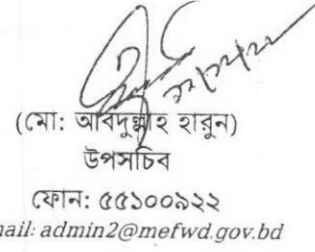 (মো: আবদুল্লাহ হারুন)
উপসচিব
ফোন: ৫৫১০০৯২২
mail: admin2@mefwd.gov.bd